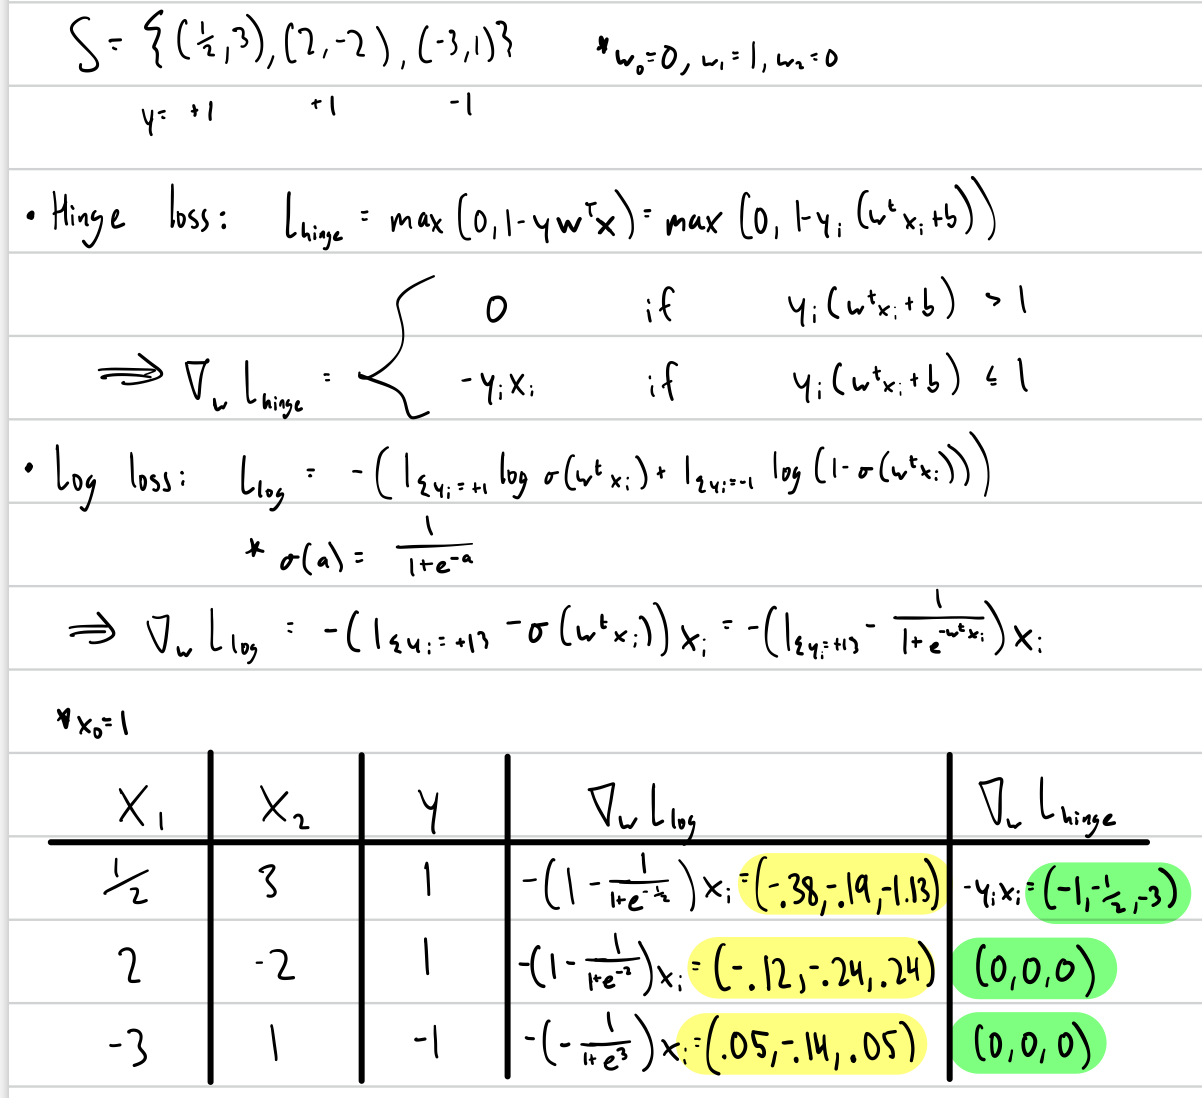 S = {(½,3),(2,-2),(-3,1)} *w₀=0, w₁=1, w₂=0
y= +1 +1 -1
• Hinge loss: L_hinge = max(0,1-ywᵀx) = max(0, 1-yᵢ(wᵗxᵢ+b))
0 if yᵢ(wᵗxᵢ+b) > 1
⟹ ∇_w L_hinge = {
-yᵢxᵢ if yᵢ(wᵗxᵢ+b) ≤ 1
• Log loss: L_log = -(1_{yᵢ=+1} log σ(wᵗxᵢ) + 1_{yᵢ=-1} log(1-σ(wᵗxᵢ)))
* σ(a) = 1/(1+e^-a)
⟹ ∇_w L_log = -(1_{yᵢ=+1} - σ(wᵗxᵢ))xᵢ = -(1_{yᵢ=+1} - 1/(1+e^-wᵗxᵢ))xᵢ
*x₀=1
X₁ X₂ y ∇_w L_log ∇_w L_hinge
½ 3 1 -(1 - 1/(1+e^-½))xᵢ = (-.38,-.19,-1.13) -yᵢxᵢ = (-1,-½,-3)
2 -2 1 -(1 - 1/(1+e^-2))xᵢ = (-.12,-.24,.24) (0,0,0)
-3 1 -1 -(- 1/(1+e^3))xᵢ = (.05,-.14,.05) (0,0,0)